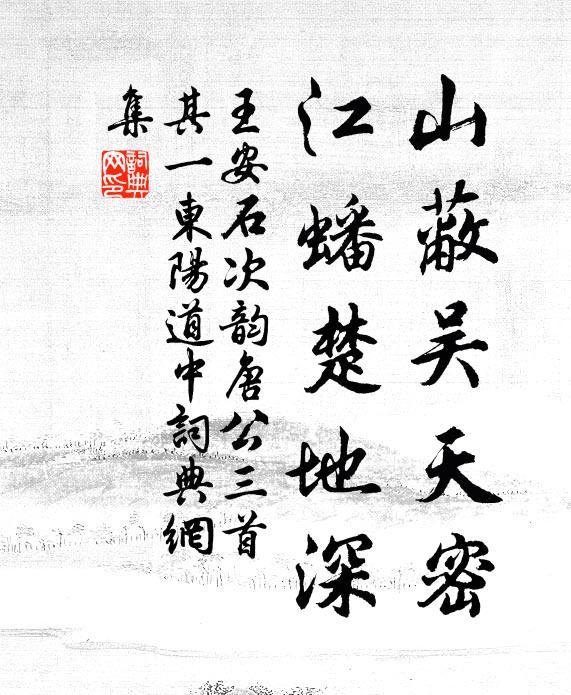 山蔽吴天密
江蟠楚地深
王安石次韵唐公三首
其一東陽道中詞典網
集
詞典
网印